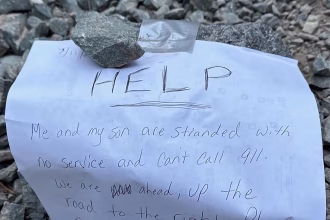 HELP
Me and my son are stranded with
no service and cant call 911.
We are ahead, up the
road to the right.